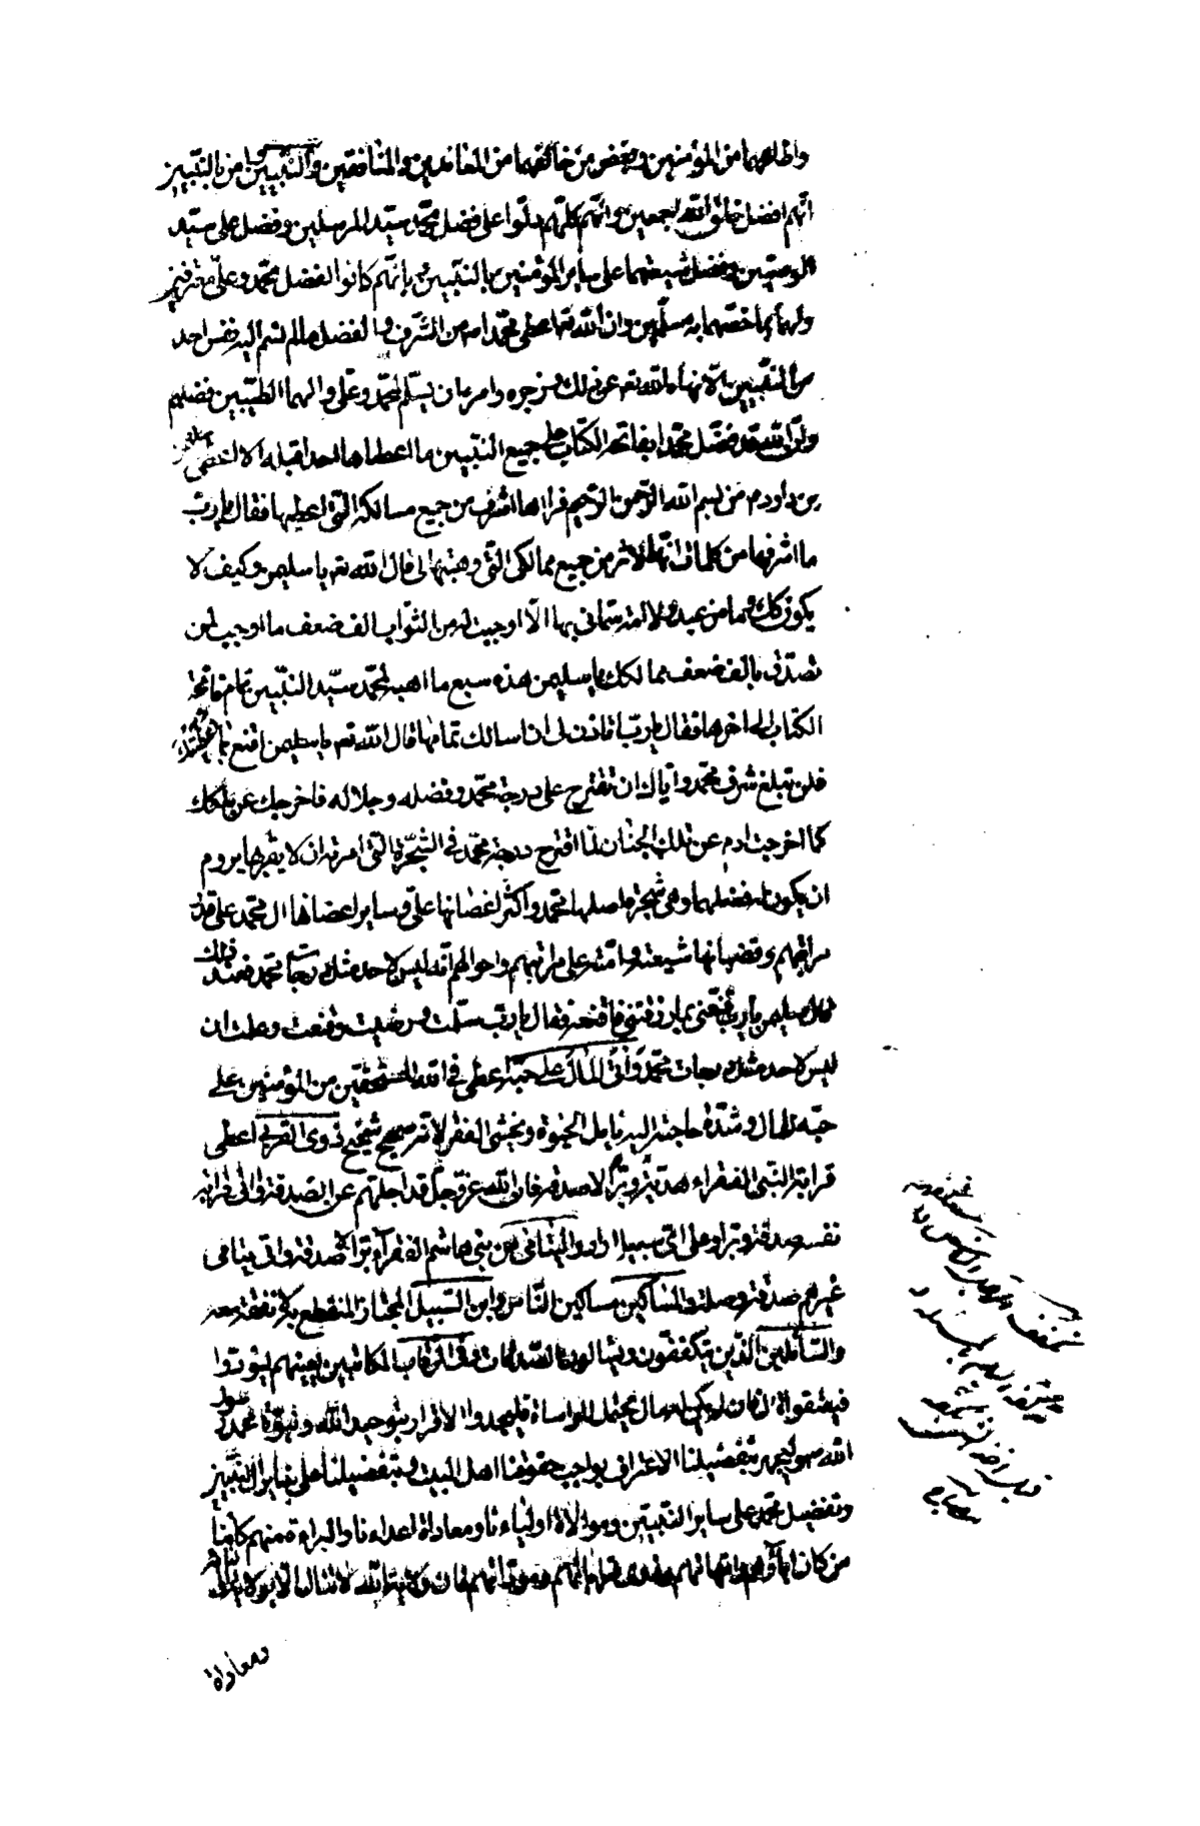 وآلهما من المؤمنين وبغض من خالفهما من المعاندين والمنافقين والنبيين وآمن بالنبيين
انهم افضل خلق الله اجمعين وانهم كلهم دلوا على فضل محمد سيد المرسلين وفضل علي سيد
الوصيين وفضل شيعتهما على ساير المؤمنين بالنبيين وبانهم كانوا لفضل محمد وعلي معترفين
ولهما بما خصهما به مسلمين وان الله تعالى اعطى محمدا من الشرف والفضل ما لم تسم اليه نفس احد
من النبيين الا نهاه الله تعالى عن ذلك وزجره وامره ان يسلم لمحمد وعلي وآلهما الطيبين فضلهم
وان الله قد فضل محمدا بفاتحة الكتاب على جميع النبيين ما اعطاها احدا قبله الا ما اعطى سليمن
بن داود من بسم الله الرحمن الرحيم فراها اشرف من جميع ممالكه التي اعطيها فقال يا رب
ما اشرفها من كلمات انها لآثر من جميع ممالكي التي وهبتها لي قال الله تعالى يا سليمن وكيف لا
يكون كك وما من عبد ولا امة سماني بها الا اوجبت له من الثواب الف ضعف ما اوجب لمن
تصدق بالف ضعف ممالكك يا سليمن هذه سبع ما اهبه لمحمد سيد النبيين تمام فاتحة
الكتاب الى اخرها فقال يا رب اتاذن لى ان اسالك تمامها قال الله تعالى يا سليمن اقنع بما اعطيتك
فلن تبلغ شرف محمد واياك ان تقترح على درجة محمد وفضله وجلاله فاخرجك عن ملكك
كما اخرجت ادم عن تلك الجنان لما اقترح درجة محمد في الشجرة التي امرته ان لا يقربها يروم
ان يكون له فضلهما وهي شجرة اصلها محمد واكثر اغصانها علي وساير اغصانها ال محمد على قدر
مراتبهم وقضبانها شيعته وامته على مراتبهم واحوالهم انه ليس لاحد مثل درجات محمد فعند ذلك
قال سليمن يا رب قنعني بما رزقتني فاقنعه فقال يا رب سلمت ورضيت وقنعت وعلمت ان
ليس لاحد مثل درجات محمد وآتى المال على حبه اعطى في الله المستحقين من المؤمنين على
حبه للمال وشدة حاجته اليه يامل الحيوة ويخشى الفقر لانه صحيح شحيح ذوى القربى اعطى
قرابة النبي الفقراء هدية وبرا لا صدقة فان الله عز وجل قد اجلهم عن الصدقة واتى قرابة
نفسه صدقة وبرا وعلى اى سبيل اراد واليتامى من بني هاشم الفقراء برا لا صدقة واتى يتامى
غيرهم صدقة وصلة والمساكين مساكين الناس وابن السبيل المجتاز المنقطع به لا نفقة معه
والسائلين الذين يتكففون ويسالون الصدقات وفي الرقاب المكاتبين يعينهم ليؤدوا
فيعتقوا قال فان لم يكن له مال يحتمل المواساة فليجدد الاقرار بتوحيد الله ونبوة محمد رسول
الله وليجهر بتفضيلنا والاعتراف بواجب حقوقنا اهل البيت وبتفضيلنا على ساير ال النبيين
وتفضيل محمد على ساير النبيين وموالاة اوليائنا ومعاداة اعدائنا والبراءة منهم كائنا
من كان اباؤهم وامهاتهم وذوي قراباتهم وموداتهم فان ولاية الله لا تنال الا بولاية اوليائه
ومعاداة